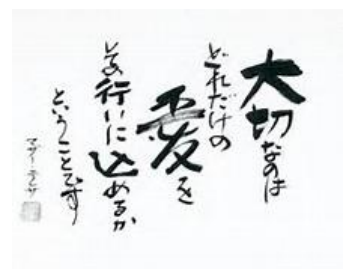 大切なのは
どれだけの
愛を
その行いに込めるか
ということです
マザー・テレサ